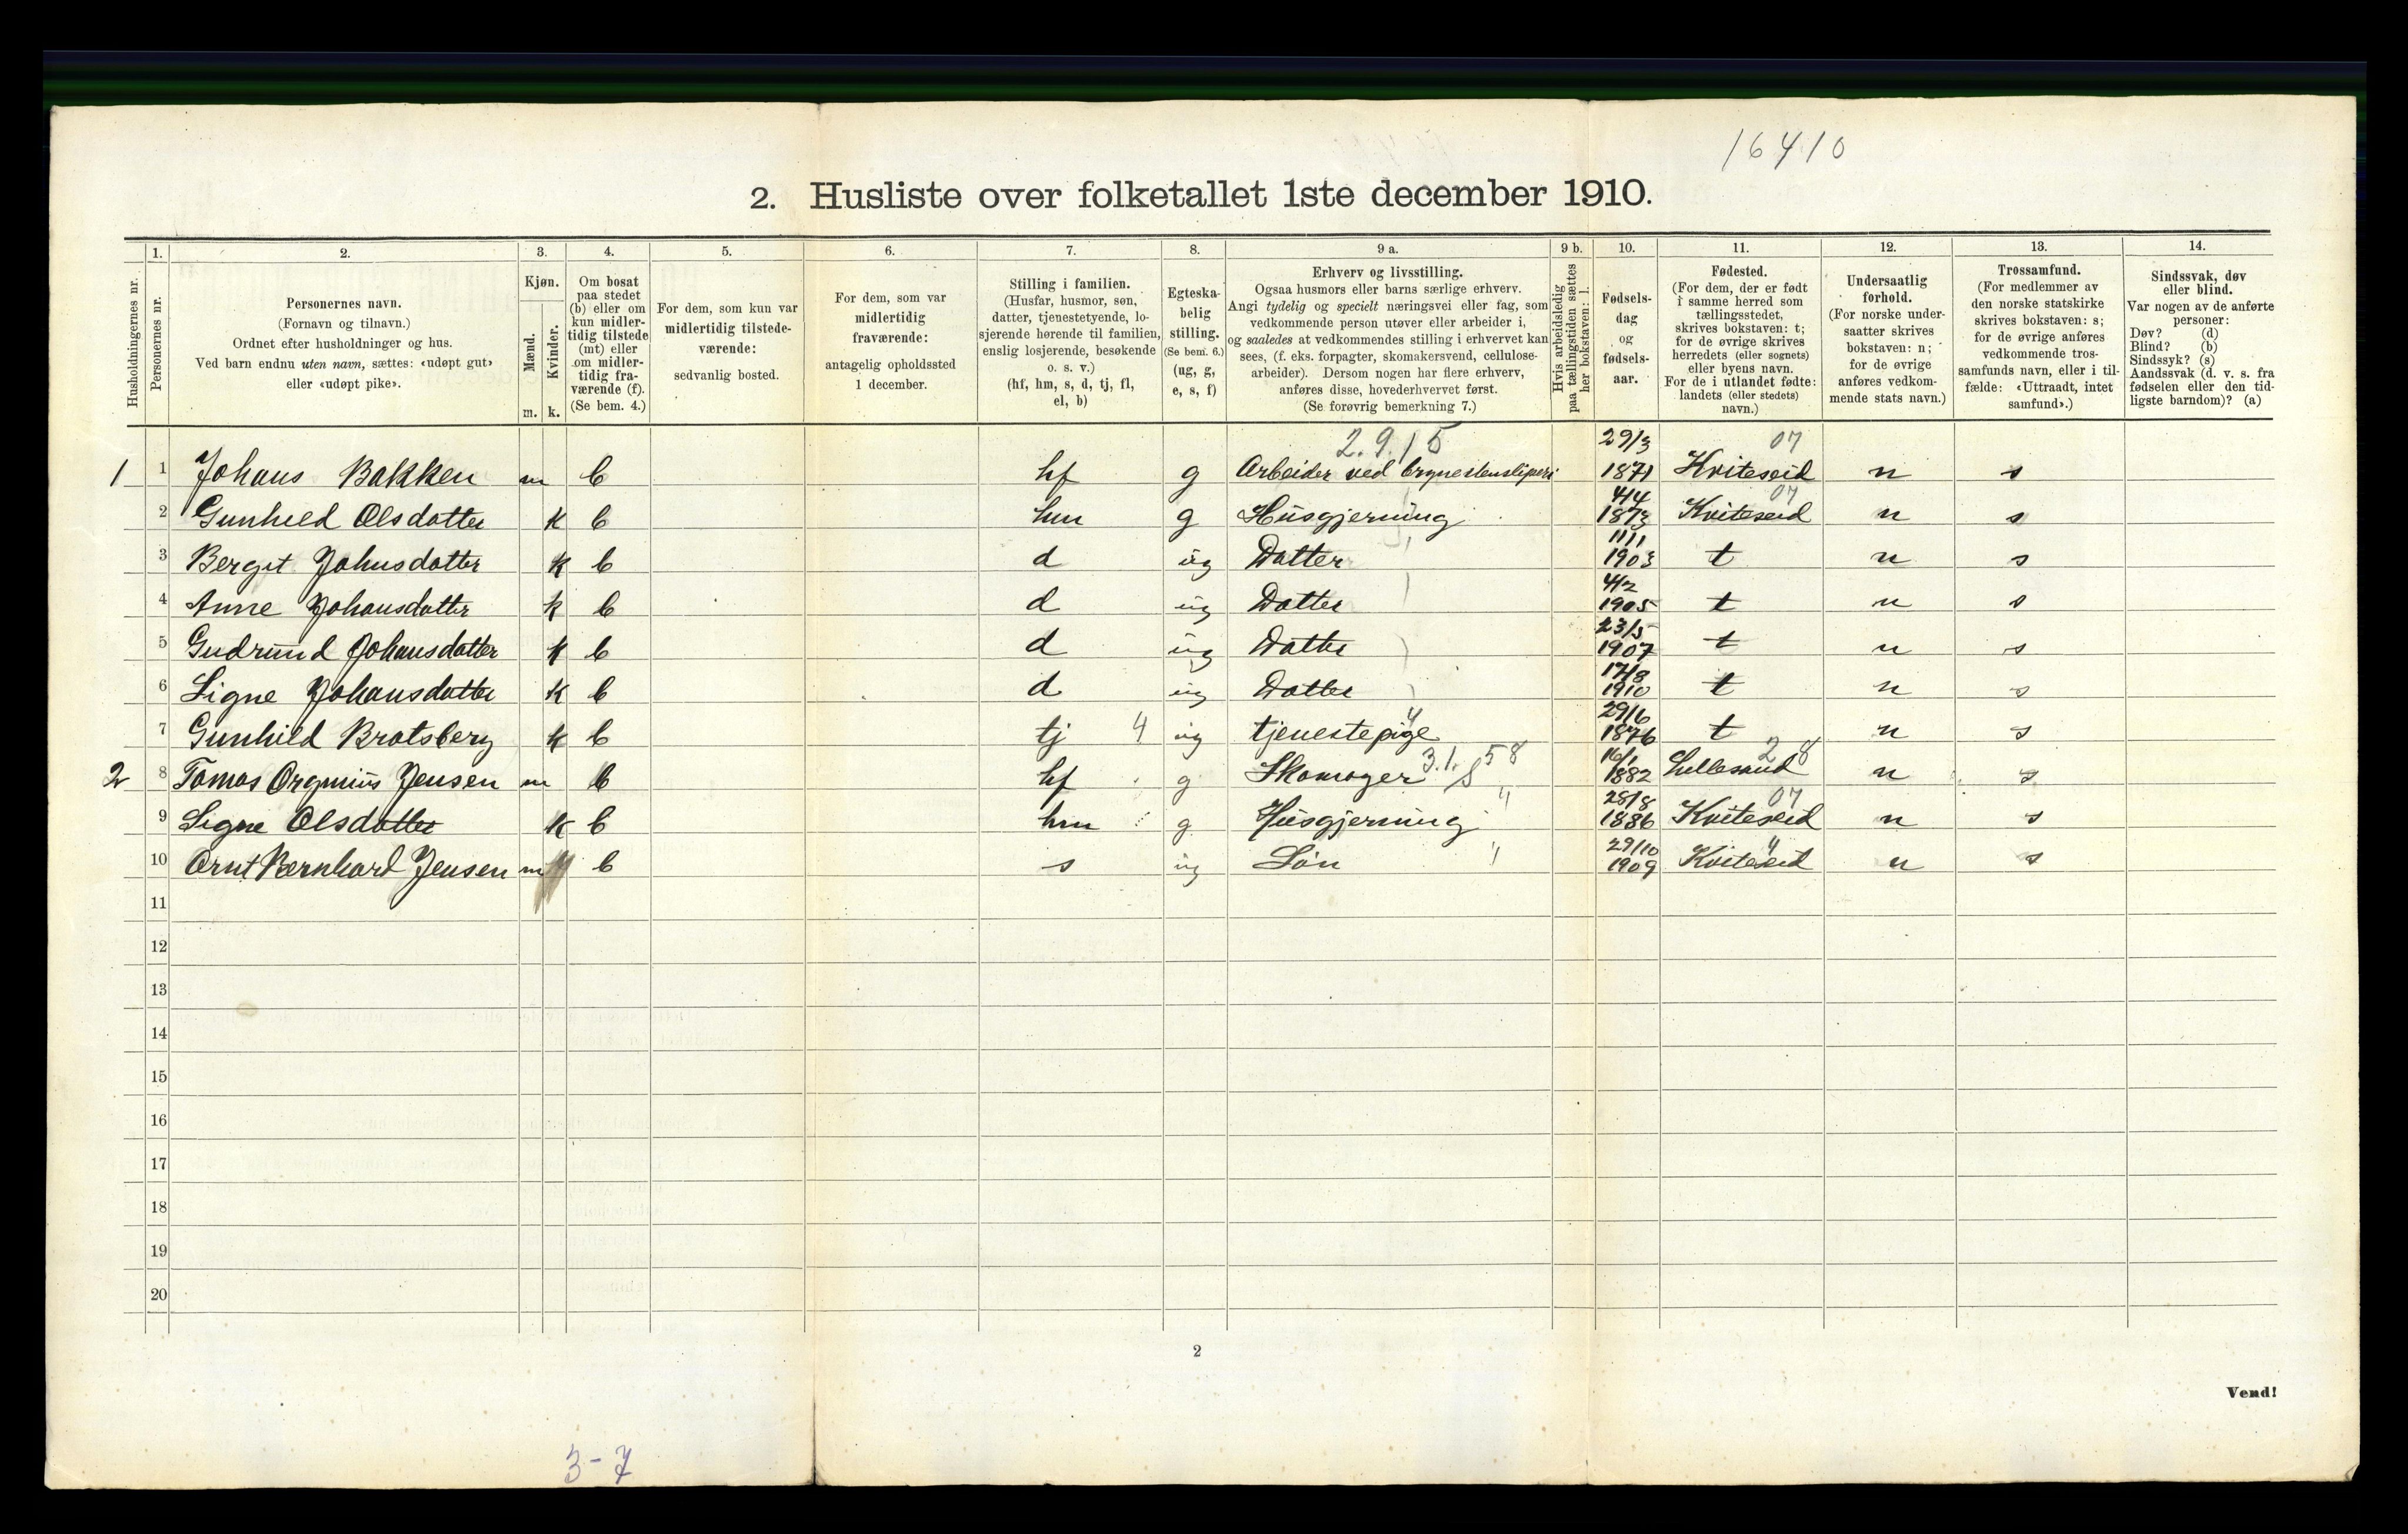 16410
2. Husliste over folketallet 1ste december 1910.
Husholdningernes nr.
1.
Personernes nr.
2.
Personernes navn.
(Fornavn og tilnavn.)
Ordnet efter husholdninger og hus.
Ved barn endnu uten navn, sættes: «udøpt gut»
eller «udøpt pike».
3.
Kjøn.
Mænd.
Kvinder.
m. k.
4.
Om bosat
paa stedet
(b) eller om
kun midler-
tidig tilstede
(mt) eller
om midler-
tidig fra-
værende (f).
(Se bem. 4.)
5.
For dem, som kun var
midlertidig tilstede-
værende:
sedvanlig bosted.
6.
For dem, som var
midlertidig
fraværende:
antagelig opholdssted
1 december.
7.
Stilling i familien.
(Husfar, husmor, søn,
datter, tjenestetyende, lo-
sjerende hørende til familien,
enslig losjerende, besøkende
o. s. v.)
(hf, hm, s, d, tj, fl,
el, b)
8.
Egteska-
belig
stilling.
(Se bem. 6.)
(ug, g,
e, s, f)
9 a.
Erhverv og livsstilling.
Ogsaa husmors eller barns særlige erhverv.
Angi tydelig og specielt næringsvei eller fag, som
vedkommende person utøver eller arbeider i,
og saaledes at vedkommendes stilling i erhvervet kan
sees, (f. eks. forpagter, skomakersvend, cellulose-
arbeider). Dersom nogen har flere erhverv,
anføres disse, hovederhvervet først.
(Se forøvrig bemerkning 7.)
9 b.
Hvis arbeidsledig
paa tællingstiden sættes
her bokstaven: l.
10.
Fødsels-
dag
og
fødsels-
aar.
11.
Fødested.
(For dem, der er født
i samme herred som
tællingsstedet,
skrives bokstaven: t;
for de øvrige skrives
herredets (eller sognets)
eller byens navn.
For de i utlandet fødte:
landets (eller stedets)
navn.)
12.
Undersaatlig
forhold.
(For norske under-
saatter skrives
bokstaven: n;
for de øvrige
anføres vedkom-
mende stats navn.)
13.
Trossamfund.
(For medlemmer av
den norske statskirke
skrives bokstaven: s;
for de øvrige anføres
vedkommende tros-
samfunds navn, eller i til-
fælde: «Uttraadt, intet
samfund».)
14.
Sindssvak, døv
eller blind.
Var nogen av de anførte
personer:
Døv? (d)
Blind? (b)
Sindssyk? (s)
Aandssvak (d. v. s. fra
fødselen eller den tid-
ligste barndom)? (a)
2.9.15 29/3 07
1 1 Johans Bakken m b hf g Arbeider ved brynestensliperi 1871 Hviteseid n s
4/4 07
2 Gunhild Olsdatter k b hm g Husgjerning 1873 Kviteseid n s
11/11
3 Bergit Johnsdatter k b d ug Datter 1903 t n s
4/2
4 Anne Johansdatter k b d ug Datter 1905 t n s
23/5
5 Gudrund Johansdatter k b d ug Datter 1907 t n s
17/8
6 Signe Johansdatter k b d ug Datter 1910 t n s
29/6
7 Gunhild Bratsberg k b tj 4 ug tjenestepige 4 1876 t n s
3.1. 8 58 16/1 28
2 8 Tomas Jensen m b hf g Skomager 1882 Lillesand n s
28/8 07
9 Signe Olsdatter k b hm g Husgjerning 4 1886 Kviteseid n s
29/10 4
10 Arnt Bernhard Jensen m b s ug Søn 4 1909 Kviteseid n s
11
12
13
14
15
16
17
18
19
20
2
Vend!
3-7